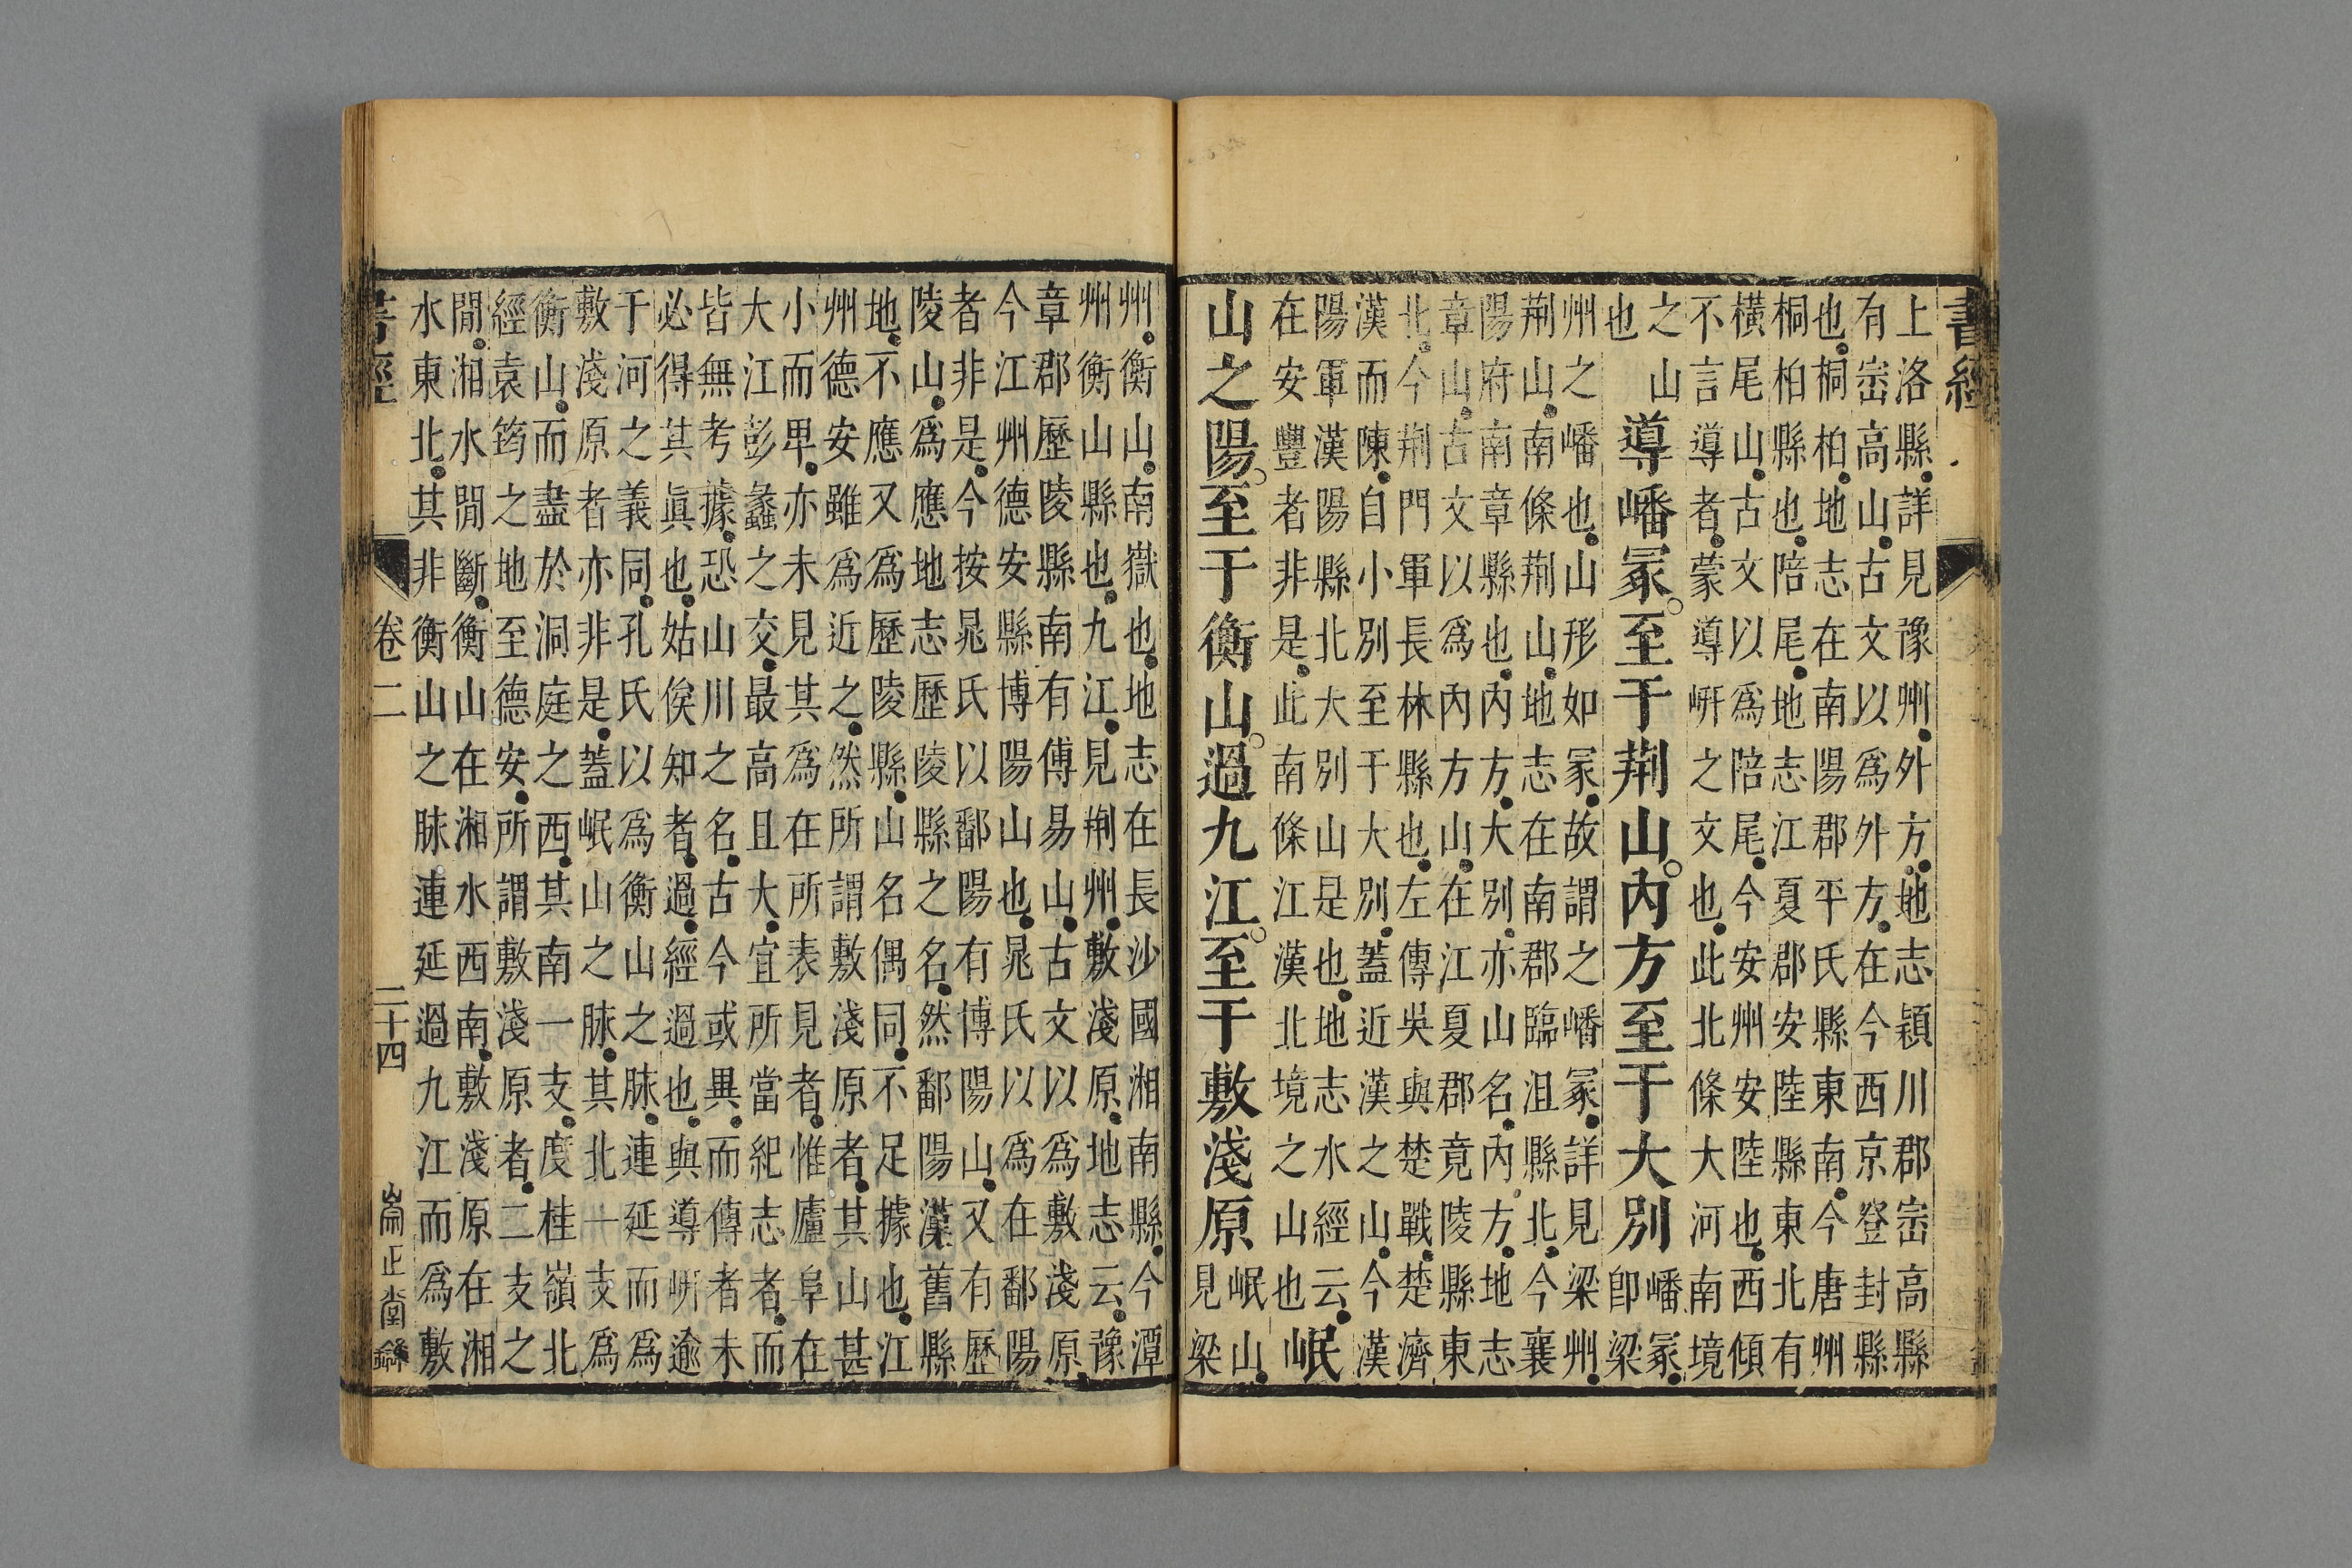 書經
上洛縣詳見豫州外方地志潁川郡崈高縣
有崈高山古文以爲外方在今西京登封縣
也桐柏地志在南陽郡平氏縣東南今唐州
桐柏縣也陪尾地志江夏郡安陸縣東北有
橫尾山古文以爲陪尾今安州安陸也西傾
不言導者蒙導岍之文也此北條大河南境
之山
也
導嶓冢。至于荊山。內方至于大別
嶓冢
卽梁
州之嶓也山形如冢故謂之嶓冢詳見梁州
荊山南條荊山地志在南郡臨沮縣北今襄
陽府南章縣也內方大別亦山名內方地志
章山古文以爲內方山在江夏郡竟陵縣東
北今荊門軍長林縣也左傳吳與楚戰楚濟
漢而陳自小別至于大別蓋近漢之山今漢
陽軍漢陽縣北大別山是也地志水經云
在安豐者非是此南條江漢北境之山也
岷
山之陽。至于衡山。過九江。至于敷淺原
岷山
見梁
州衡山南嶽也地志在長沙國湘南縣今潭
州衡山縣也九江見荊州敷淺原地志云豫
章郡歷陵縣南有傅易山古文以爲敷淺原
今江州德安縣博陽山也晁氏以爲在鄱陽
者非是今按晁氏以鄱陽有博陽山又有歷
陵山爲應地志歷陵縣之名然鄱陽漢舊縣
地不應又爲歷陵縣山名偶同不足據也江
州德安雖爲近之然所謂敷淺原者其山甚
小而卑亦未見其爲在所表見者惟廬阜在
大江彭蠡之交最高且大宜所當紀志者而
皆無考據恐山川之名古今或異而傳者未
必得其眞也姑俟知者過經過也與導岍逾
于河之義同孔氏以爲衡山之脉連延而爲
敷淺原者亦非是蓋岷山之脉其北一支爲
衡山而盡於洞庭之西其南一支度桂嶺北
經袁筠之地至德安所謂敷淺原者二支之
閒湘水閒斷衡山在湘水西南敷淺原在湘
水東北其非衡山之脉連延過九江而爲敷
書經 卷二 二十四